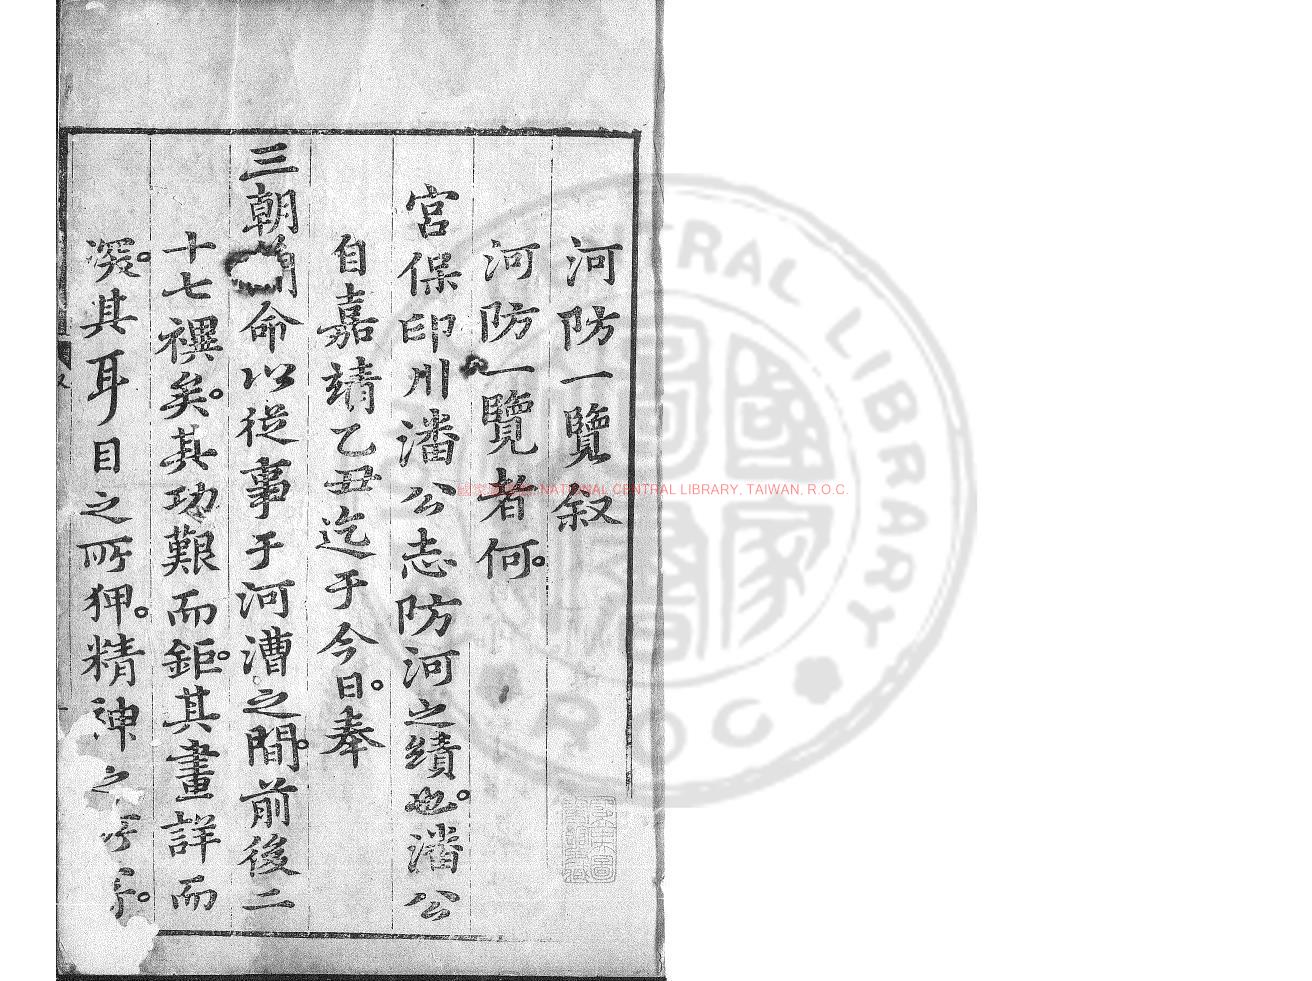 河防一覽叙
河防一覽者何。
宮保印川潘公志防河之績也。潘公
自嘉靖乙丑迄于今日。奉
三朝命以從事于河漕之間。前後二
十七禩矣。其功艱而鉅。其畫詳而
深。其耳目之所狎。精神之
NATIONAL CENTRAL LIBRARY, TAIWAN, R.O.C.